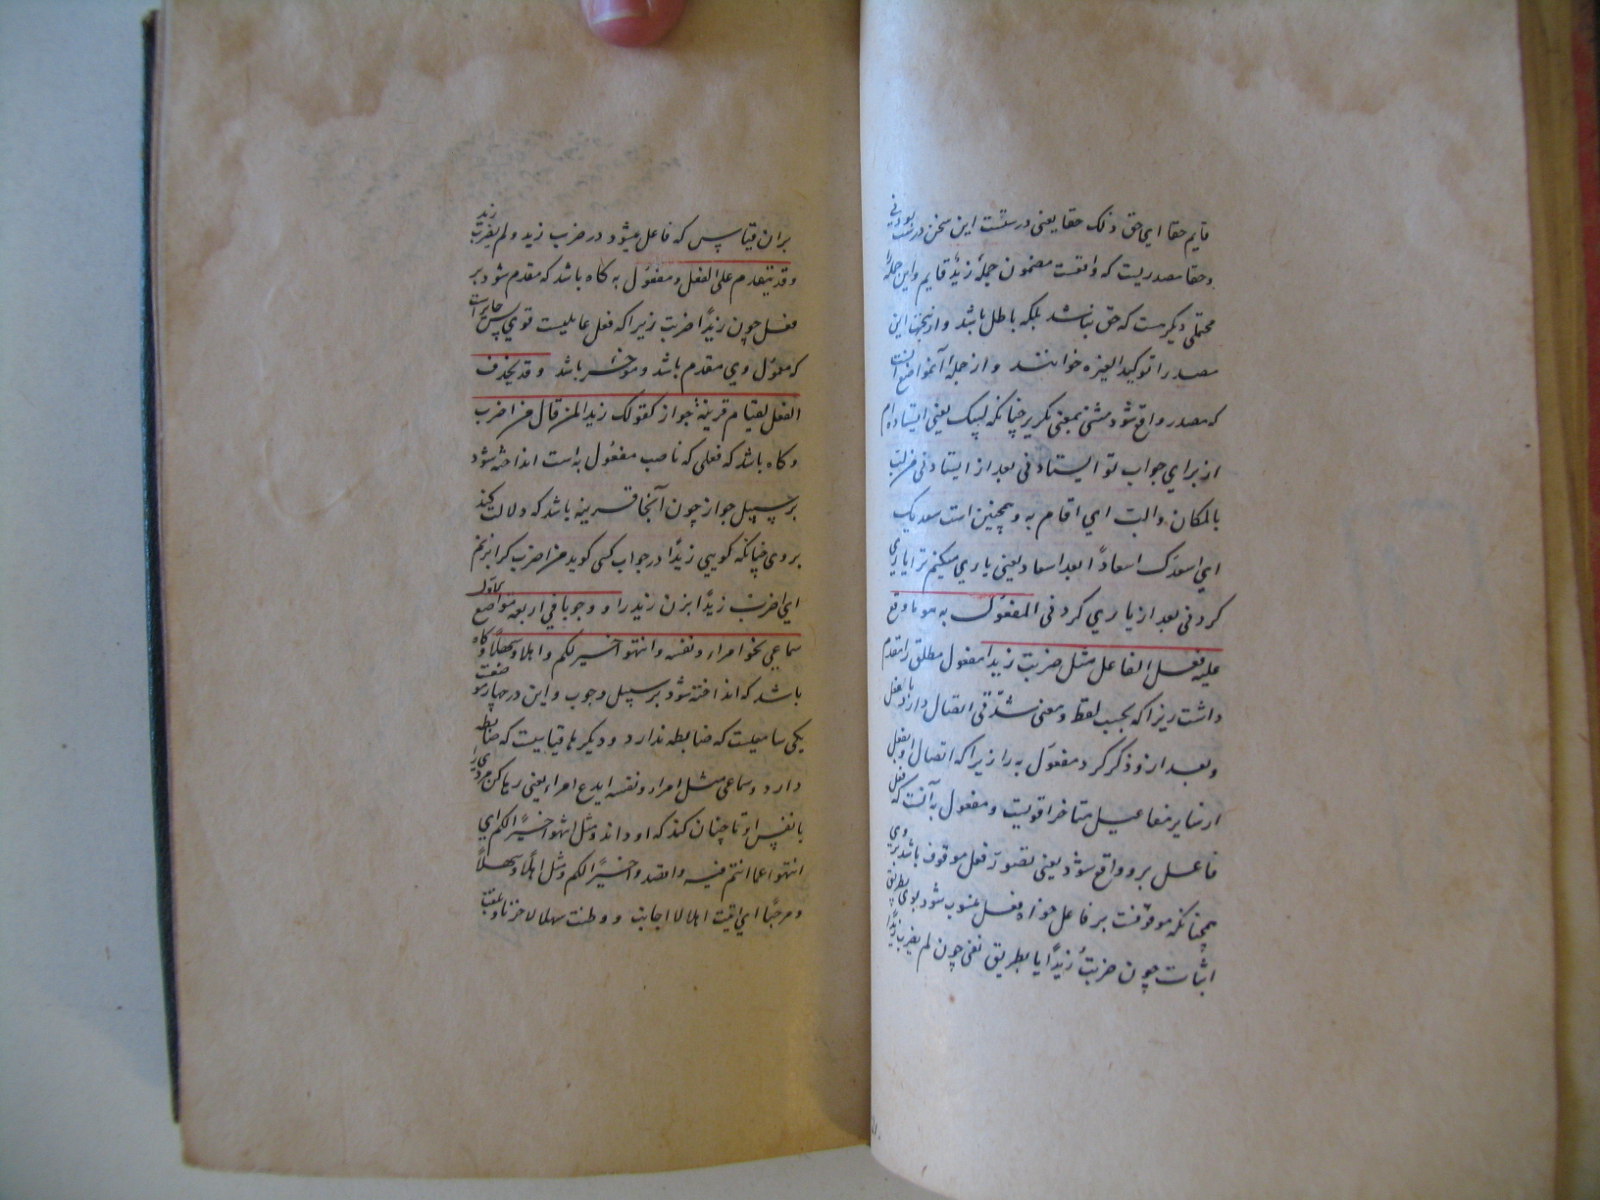 قایم حقا ای حق ذلک حقا یعنی درستست این سخن درست بودنی
و حقا مصدریست که واقعست مضمون جملهٔ زیدٌ قایم و این جمله را
محتملی دیگرست که حق نباشد بلکه باطل باشد و ازینجهت این
مصدر را توکید الغیره خوانند و از جمله آنمواضع آنست
که مصدر واقع شود مثنی بمعنی تکریر چنانکه لبیک یعنی ایستاده‌ام
از برای جواب تو ایستادنی بعد از ایستادنی من لب
بالمکان والب ای اقام به و همچنین است سعدیک
ای اسعدک اسعاداً بعد اسعاد یعنی یاری میکنم ترا یاری
کردنی بعد از یاری کردنی المفعول به هو ما وقع
علیه فعل الفاعل مثل ضربت زیدا مفعول مطلق را مقدم
داشت زیرا که بحسب لفظ و معنی شدتی اتصال دارد با فعل
و بعد از و ذکر کرد مفعول به را زیرا که اتصال او بفعل
از سایر مفاعیل متاخر اقویست و مفعول به آنست که فعل
فاعل برو واقع شود یعنی تصور فعل موقوف باشد بروی
همچنانکه موقوفست بر فاعل خواه فعل منسوب شود بوی بطریق
اثبات چون ضربتُ زیدًا یا بطریق نفی چون لم یضرب زیدًا
بران قیاس که فاعل میشود در ضرب زید و لم یضرب زید
وقد یتقدم علی الفعل و مفعول به گاه باشد که مقدم شود بر
فعل چون زیدًا ضربت زیرا که فعل عاملیست قوی پس جایز است
که معمول وی مقدم باشد و مؤخر باشد وقد یحذف
الفعل لقیام قرینة جوازا کقولک زیدا لمن قال من اضرب
و گاه باشد که فعلی که ناصب مفعول به است انداخته شود
بر سبیل جواز چون آنجا قرینه باشد که دلالت کند
بروی چنانکه گویی زیدًا در جواب کسی که گوید من اضرب کرا بزنم
ای اضرب زیدًا بزن زید را و وجوبا فی اربعة مواضع الاول
سماعی نحو امراء و نفسه و انتهوا خیرا لکم و اهلا و سهلًا و گاه
باشد که انداخته شود بر سبیل وجوب و این در چهار موضعست
یکی سماعیست که ضابطه ندارد و دیگرها قیاسیست که ضابطه
دارد و سماعی مثل امراء و نفسه ای دع امراء یعنی رها کن مردی را
با نفس او تا چنان کند که او داند و مثل انتهوا خیرًا لکم ای
انتهوا عما انتم فیه و اقصدوا خیرًا لکم و مثل اهلًا و سهلًا
و مرحبًا ای اتیت اهلا لا اجانب و وطئت سهلا لا حزنا و